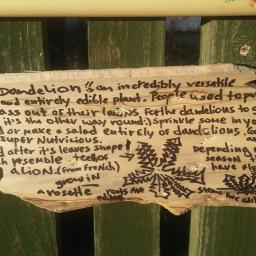 Dandelion is an incredibly versatile
and entirely edible plant. People used to pu
ass out of their lawns for the dandelions to
it's the other way round:) Sprinkle some in yo
d or make a salad entirely of dandelions.
super Nutricious.
d after it's leaves shape!
h resemble teeth of
a Lion. (From French)
grow in
a rosette
depending
season
have